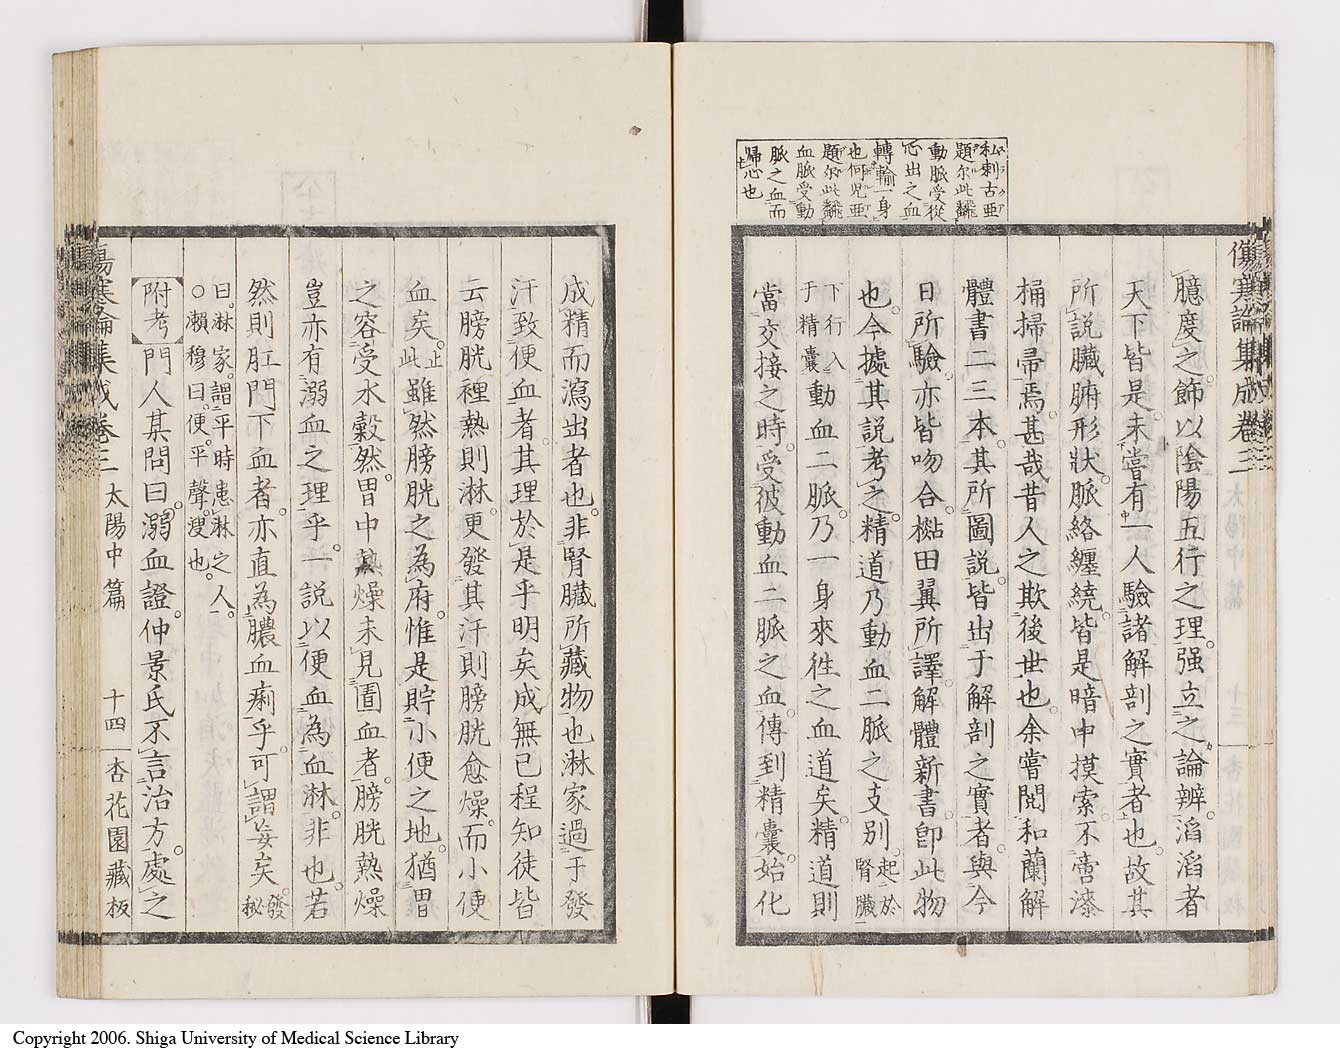 私刺古亜
題尓此飜
動脈受從
心出之血
轉輸一身
也何児亜
題尓此飜
血脈受動
脈之血而
歸心也
傷寒論集成卷三
臆度之飾以陰陽五行之理强立之論辨滔滔者
天下皆是未嘗有一人驗諸解剖之實者也故其
所説臓腑形狀脈絡纏繞皆是暗中摸索不啻漆
桶掃帚焉甚哉昔人之欺後世也余嘗閲和蘭解
體書二三本其所圖説皆出于解剖之實者與今
日所驗亦皆吻合檝田翼所譯解體新書卽此物
也今據其説考之精道乃動血二脈之支别起於腎臓
下行入于精囊動血二脈乃一身來徃之血道矣精道則
當交接之時受彼動血二脈之血傳到精囊始化
成精而瀉出者也非腎臓所藏物也淋家過于發
汗致便血者其理於是乎明矣成無已程知徒皆
云膀胱裡熱則淋更發其汗則膀胱愈燥而小便
血矣止此雖然膀胱之為府惟是貯小便之地猶胃
之容受水穀然胃中熱燥未見圊血者膀胱熱燥
豈亦有溺血之理乎一説以便血為血淋非也若
然則肛門下血者亦直為膿血痢乎可謂妄矣發秘
曰淋家謂平時患淋之人
○瀬穆曰便平聲溲也
附考門人某問曰溺血證仲景氏不言治方處之
傷寒論集成卷三 太陽中篇 十四 杏花園藏板
Copyright 2006. Shiga University of Medical Science Library